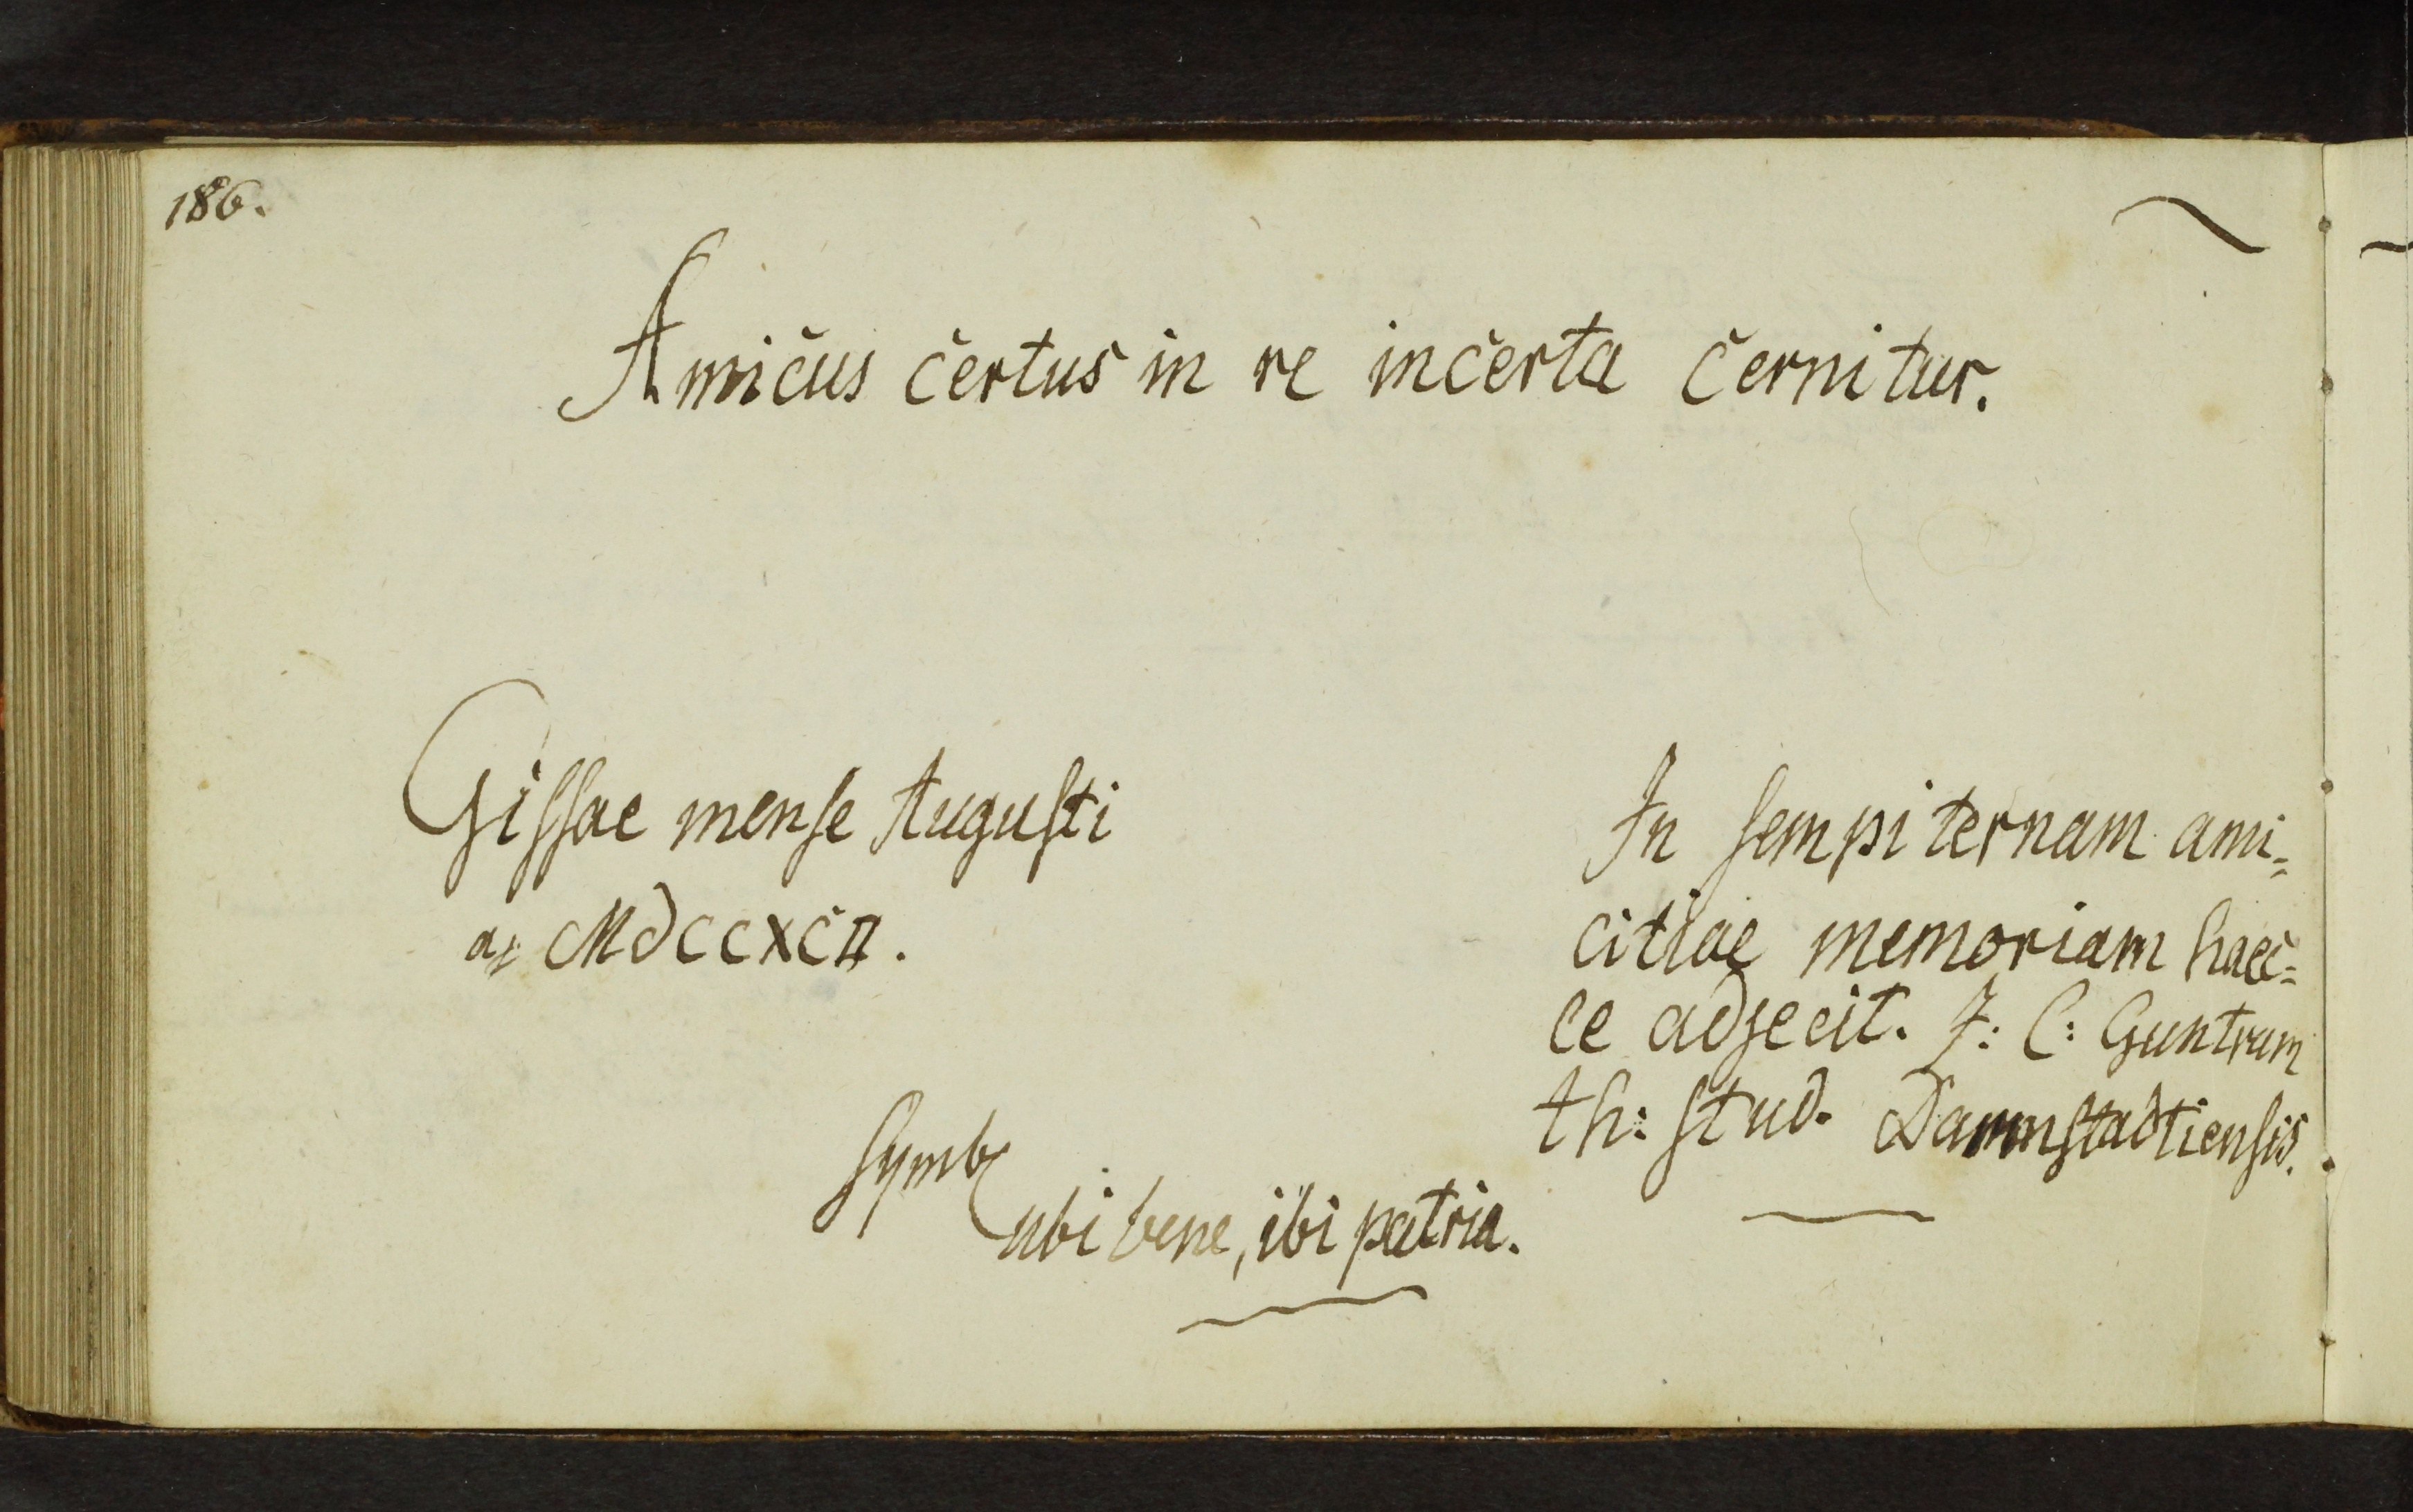 186.
Amicus certus in re incerta cernitur.
Gissae mense Augusti
MdCCXCII.
Symb
ubi bene, ibi patria.
In sempiternam ami=
citiae memoriam haec=
ce adjecit. J: C: Guntrum
th: stud. Darmstadtiensis.